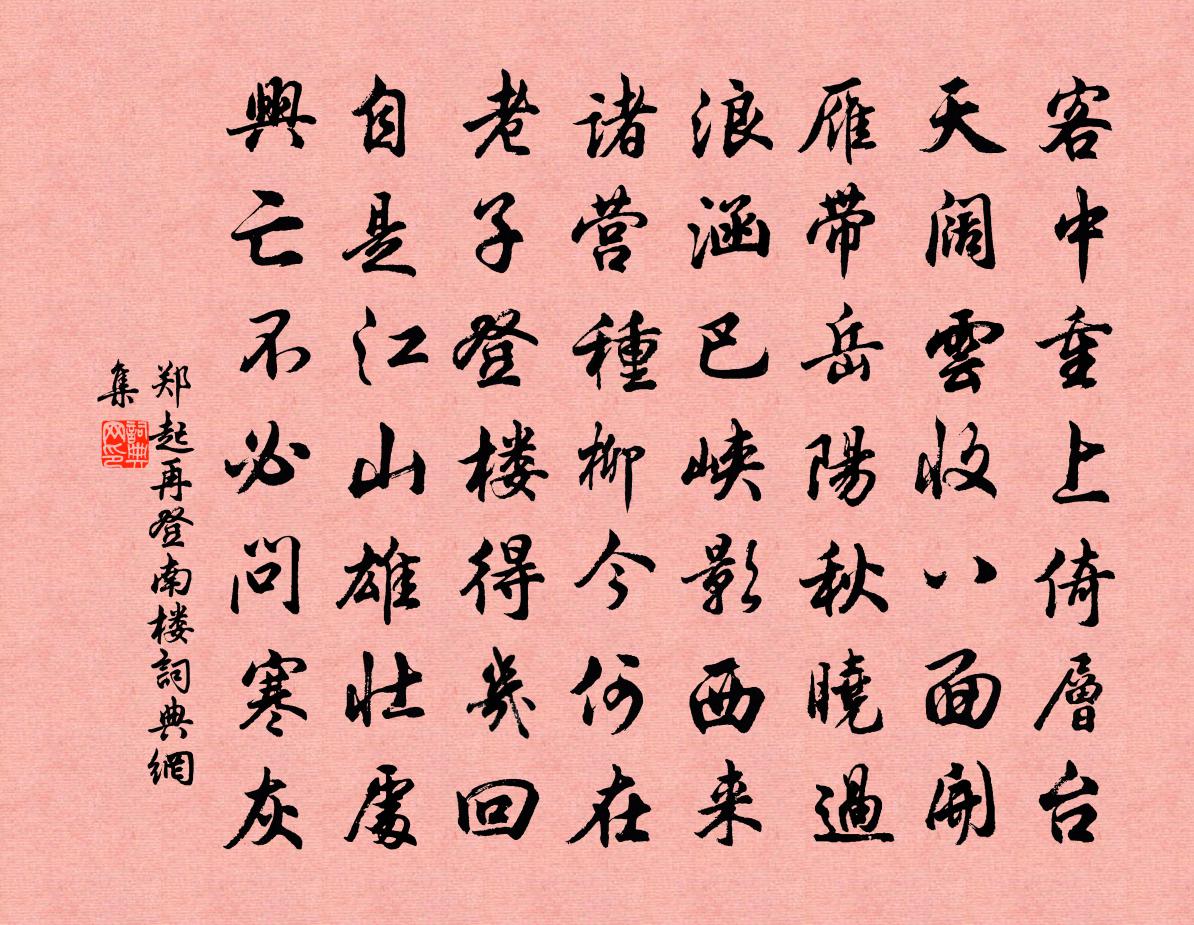 客中重上倚層台
天阔雲收八面開
雁帶岳陽秋曉過
浪涵巴峡影西来
诸营種柳今何在
老子登楼得幾回
自是江山雄壮處
興亡不必问寒灰
郑起再登南楼詞典網
集
詞典网印